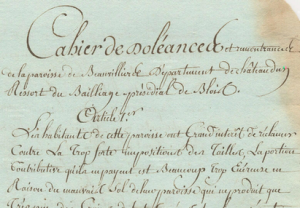 Cahier de Doléances et remontrances
de la paroisse de Beauvilliers Département de châteaudun
Ressort du Bailliage présidial de Blois
Article 1er
Les habitants de cette paroisse ont Grand interêt de réclamer
Contre la Trop forte imposition des Tailles, La portion
Contributive qu'ils en payent est Beaucoup Trop
Raison du mauvais Sol de leur paroisse qui ne produit que